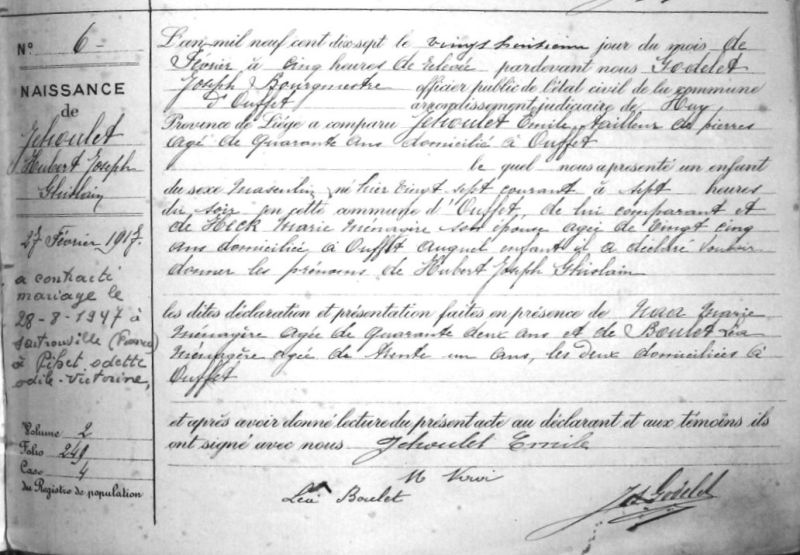 N° 6
NAISSANCE
de
Jehoulet
Hubert Joseph
Ghislain
27 Février 1917.
a contracté
mariage le
28-8-1947 à
Sartrouville (France)
à Pibet odette
odile-Victorine,
Volume 2
Folio 249
Case 4
du Registre de population
L'an mil neuf cent dix sept le vingt huitième jour du mois de
Février à cinq heures de relevée pardevant nous Godelet
Joseph Bourgmestre officier public de l'état civil de la commune
d'Ouffet arrondissement judiciaire de Huy
Province de Liége a comparu Jehoulet Emile, tailleur de pierres
agé de quarante ans domicilié à Ouffet
le quel nous a présenté un enfant
du sexe masculin né hier vingt sept courant à sept heures
du soir en cette commune d'Ouffet, de lui comparant et
de Heck Marie Ménagère son épouse agée de vingt cinq
ans domiciliée à Ouffet auquel enfant il a déclaré vouloir
donner les prénoms de Hubert Joseph Ghislain
les dites déclaration et présentation faites en présence de Marie
Ménagère agée de quarante deux ans et de Boulet Léa
Ménagère agée de trente un ans, les deux domiciliées à
Ouffet
et après avoir donné lecture du présent acte au déclarant et aux témoins ils
ont signé avec nous Jehoulet Emile
M
Léa Boulet
Jos Godelet